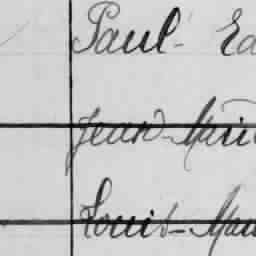 Paul- Ed
Jean-Marie
Louis-Mau